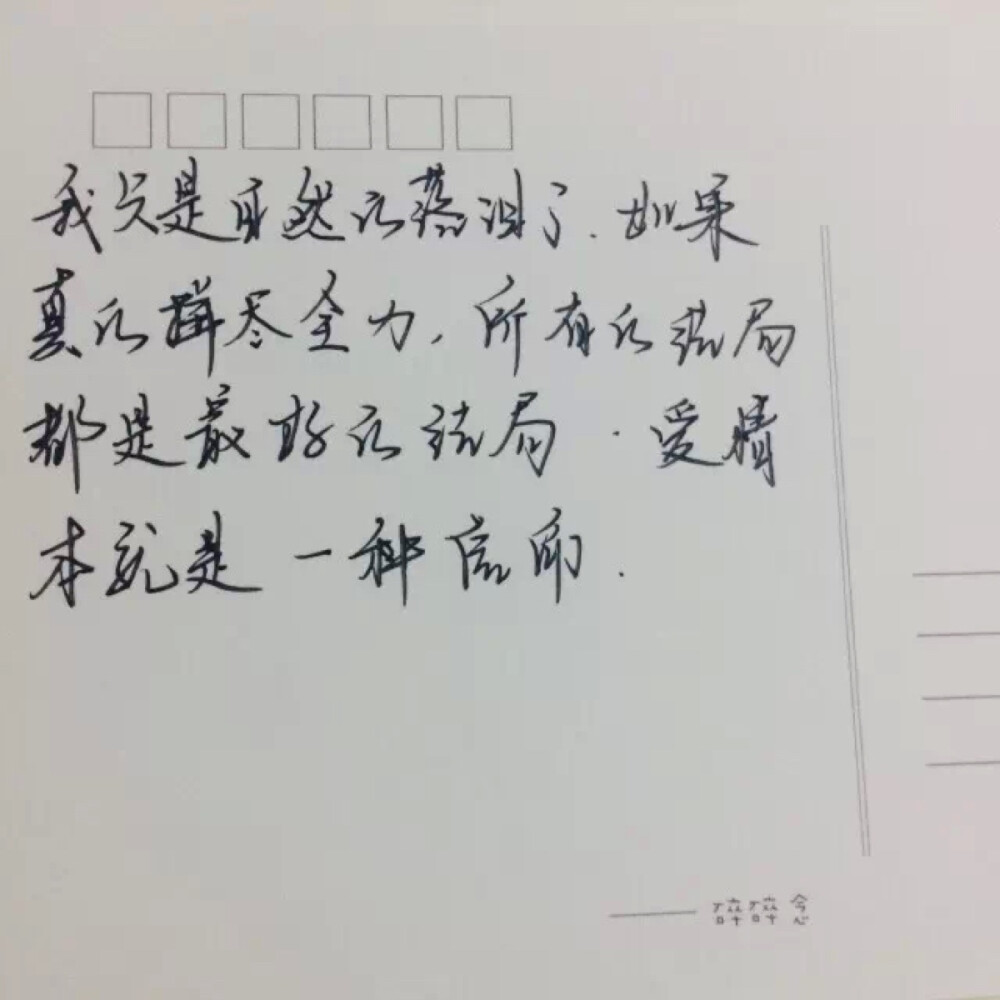 我只是自然的落泪了.如果
真的拼尽全力,所有的结局
都是最好的结局.爱情
本就是一种信仰.
——碎碎念